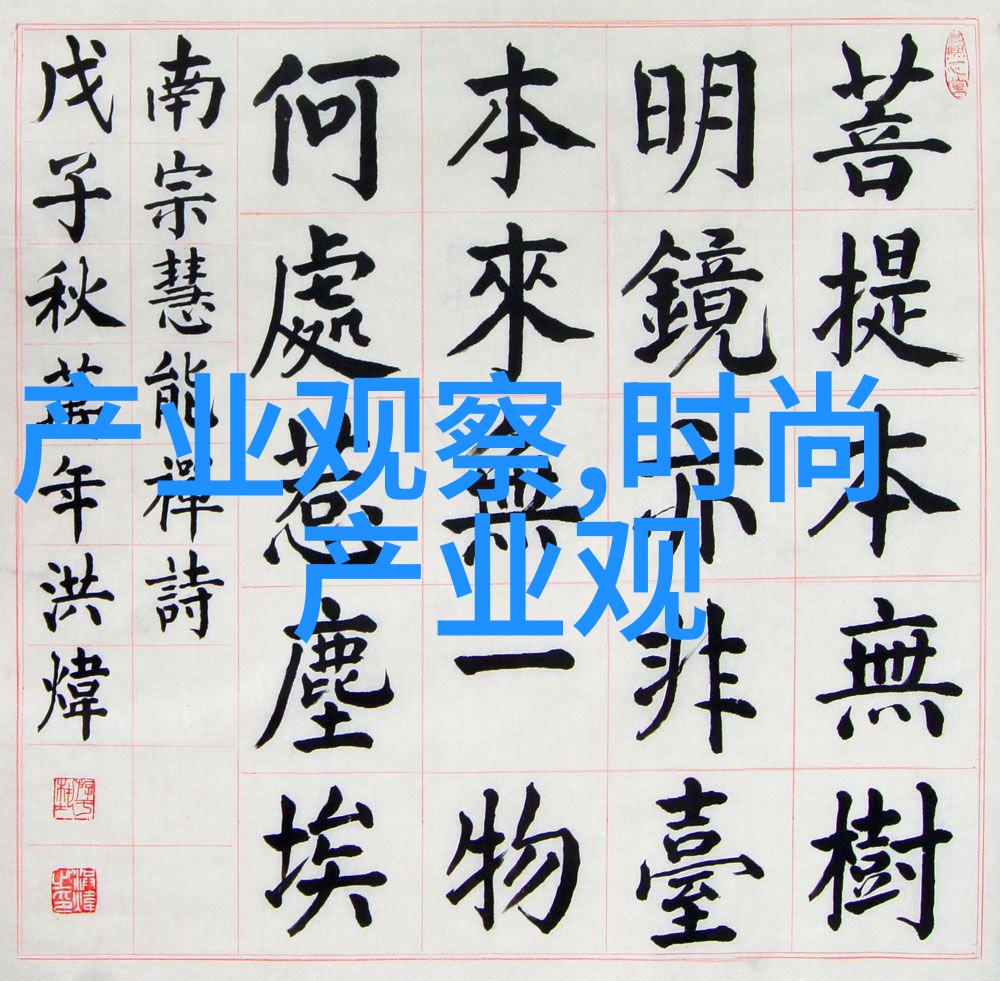 菩提本無樹
明鏡亦非臺
本來無一物
何處惹塵埃
南宗慧能禪詩
戊子秋年洪煒
产业观察,时尚
产业观